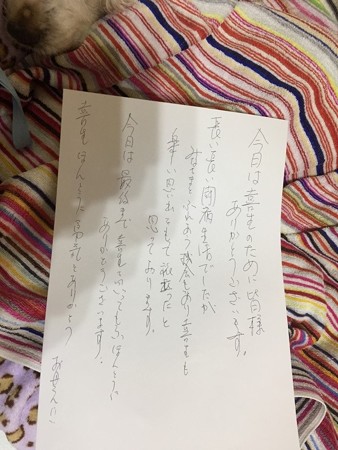 今日は喜生のために皆様
ありがとうございます。
長い長い闘病生活でしたが
みなさまとふれあう機会もあり喜生も
楽しい思い出をもって旅立ったと
思っております。
今日は最後まで喜生といっしょにほんとうに
ありがとうございます。
喜生ほんとうに元気をありがとう
お母さんに